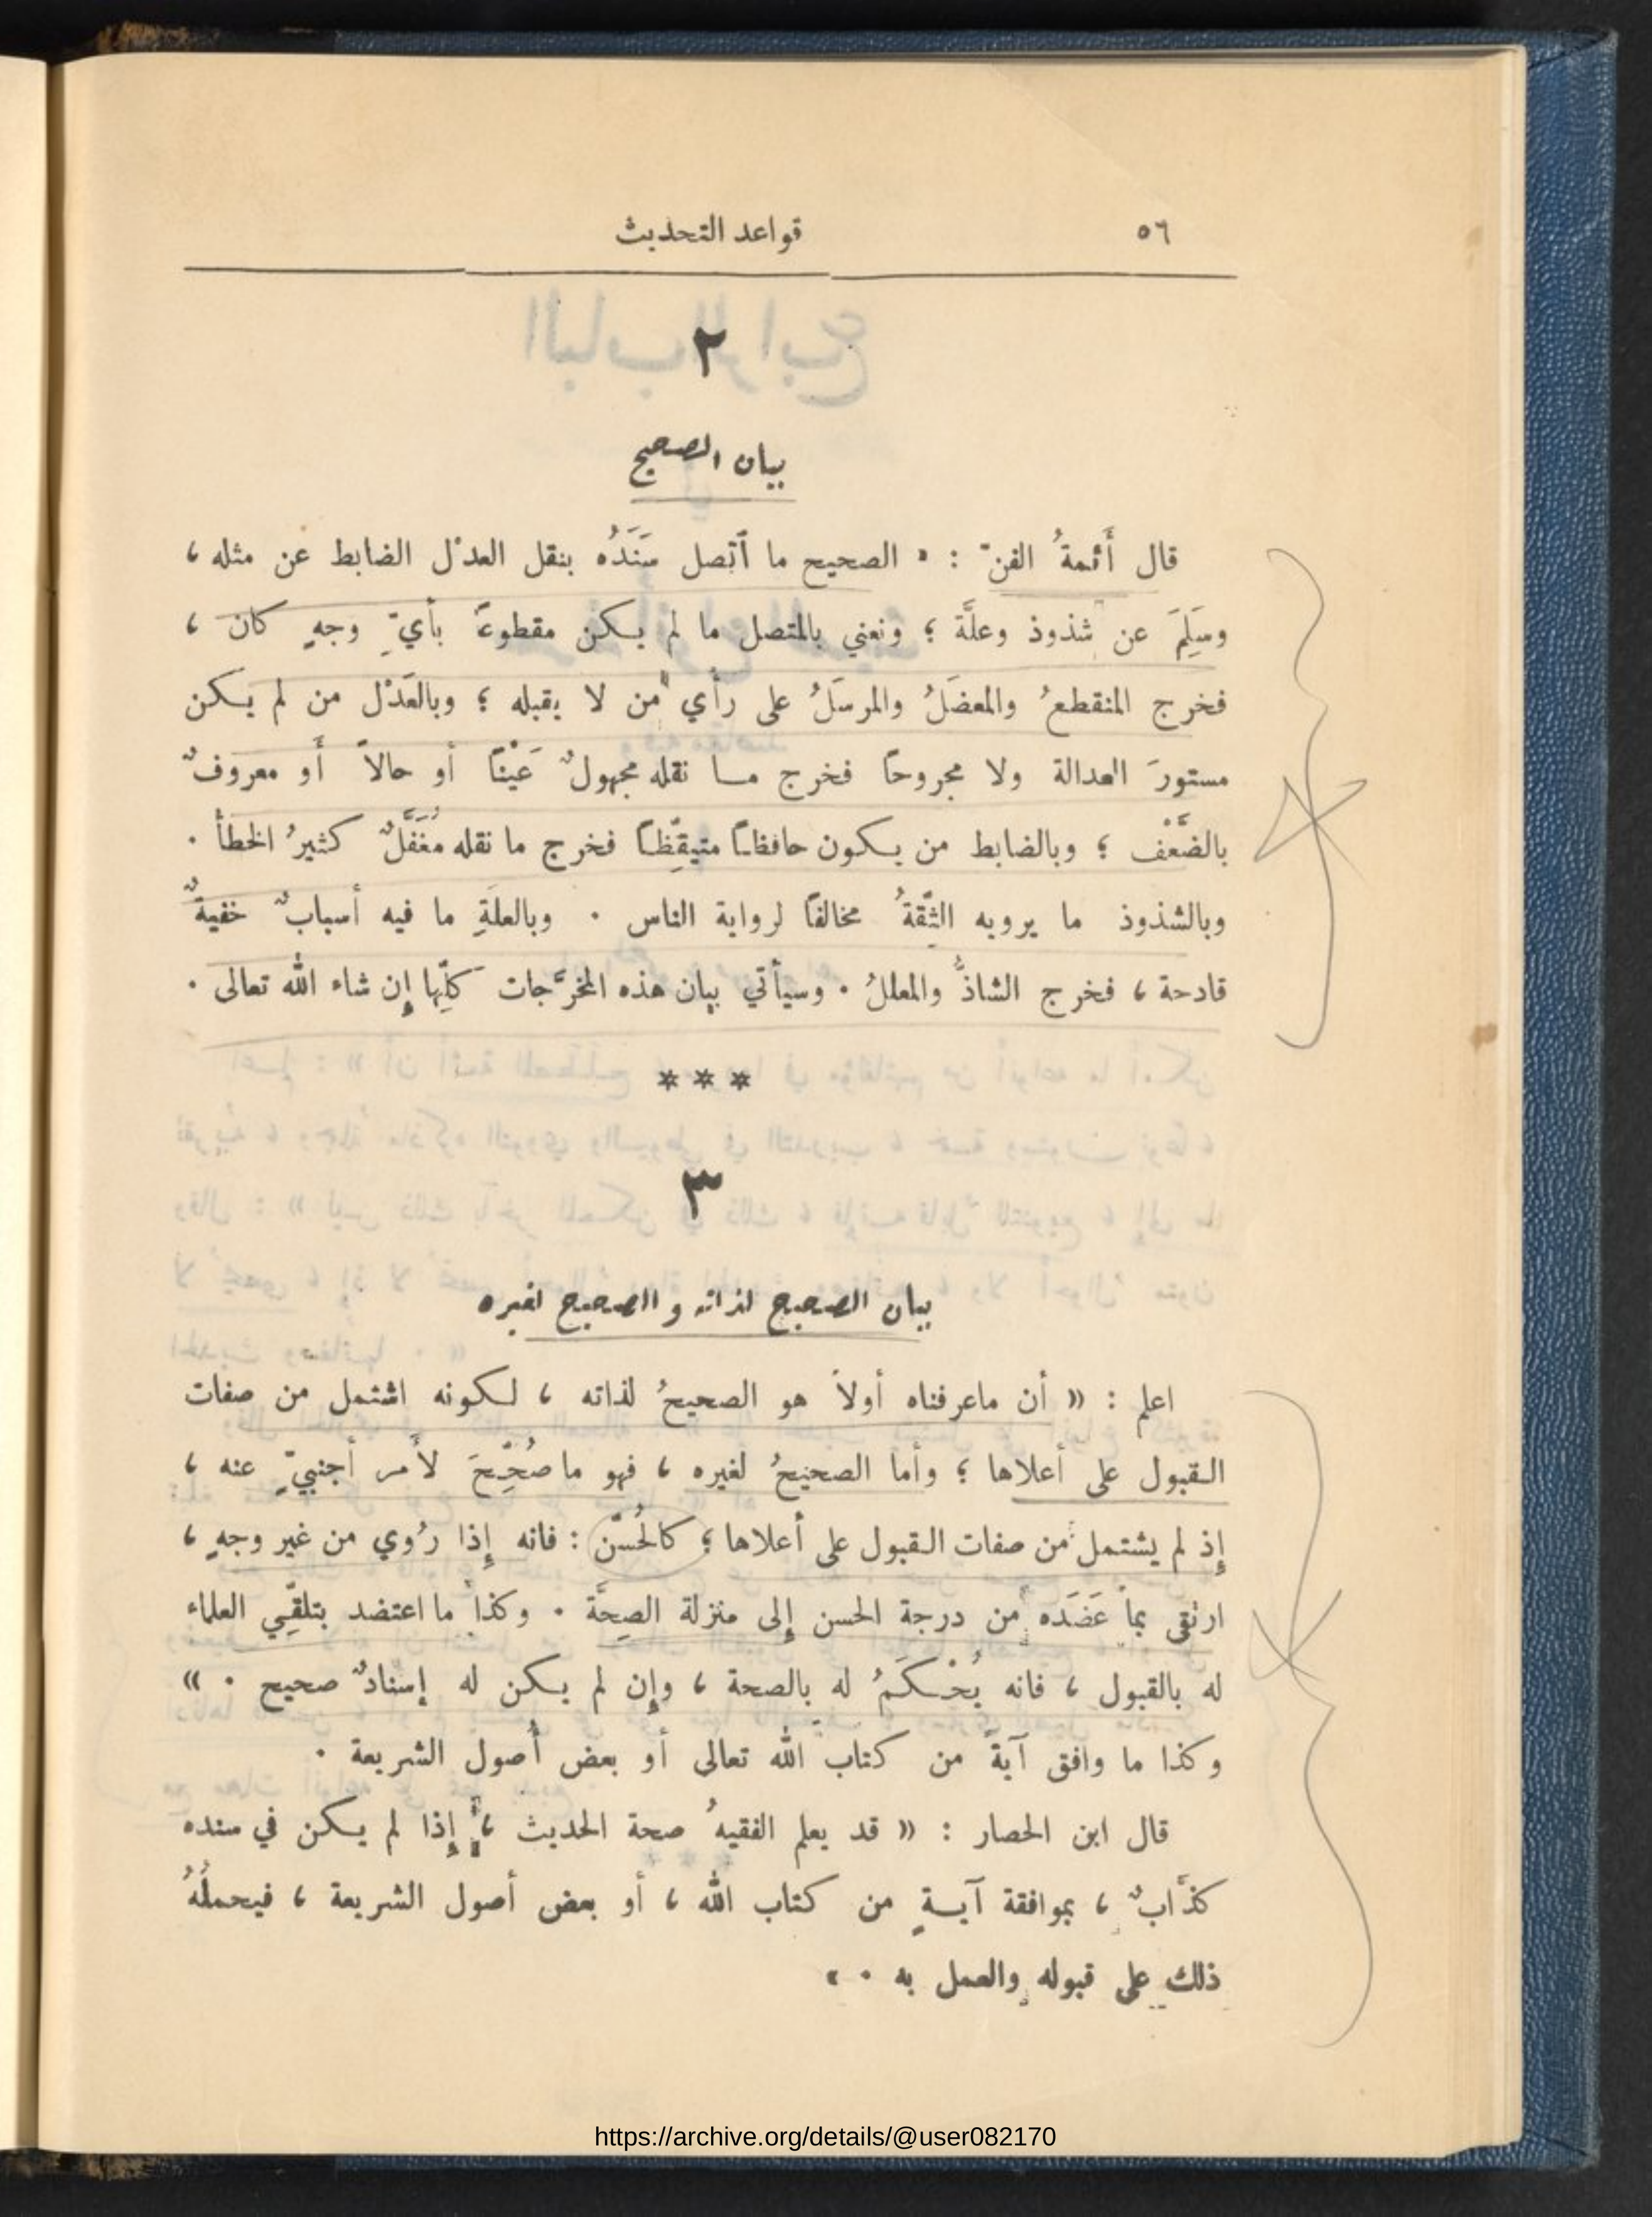 ٥٦ قواعد التحديث
٢
بيان الصحيح
قال أَئمةُ الفنّ : « الصحيح ما ٱتصل سَنَدُه بنقل العدْل الضابط عن مثله ،
وسَلِمَ عن شذوذ وعلَّة ؛ ونعني بالمتصل ما لم يكن مقطوعاً بأيِّ وجهٍ كان ،
فخرج المنقطعُ والمعضَلُ والمرسَلُ على رأي من لا يقبله ؛ وبالعَدْل من لم يكن
مستورَ العدالة ولا مجروحاً فخرج ما نقله مجهولٌ عَيْناً أو حالاً أَو معروفٌ
بالضَّعْف ؛ وبالضابط من يكون حافظاً متيقِّظاً فخرج ما نقله مُغَفَّلٌ كثيرُ الخطأ .
وبالشذوذ ما يرويه الثِّقةُ مخالفاً لرواية الناس . وبالعلةِ ما فيه أسبابٌ خفيةٌ
قادحة ، فخرج الشاذُّ والمعللُ . وسيأتي بيان هذه المخرَّجات كلِّها إِن شاء الله تعالى .
***
٣
بيان الصحيح لذاته والصحيح لغيره
اعلم : « أن ماعرفناه أولاً هو الصحيحُ لذاته ، لكونه اشتمل من صفات
القبول على أعلاها ؛ وأما الصحيحُ لغيره ، فهو ما صُحِّحَ لأَمر أجنبيٍّ عنه ،
إِذ لم يشتمل من صفات القبول على أعلاها ؛ كالحُسَّن : فانه إِذا رُوي من غير وجهٍ ،
ارتقى بما عَضَدَه من درجة الحسن إِلى منزلة الصِحَّة . وكذا ما اعتضد بتلقِّي العلماء
له بالقبول ، فانه يُحْكَمُ له بالصحة ، وإِن لم يكن له إِسنادٌ صحيح . »
وكذا ما وافق آيةً من كتاب الله تعالى أو بعض أُصول الشريعة .
قال ابن الحصار : « قد يعلم الفقيهُ صحة الحديث ، إِذا لم يكن في سنده
كذَّابٌ ، بموافقة آيةٍ من كتاب الله ، أو بعض أصول الشريعة ، فيحملُهُ
ذلك على قبوله والعمل به . »
https://archive.org/details/@user082170